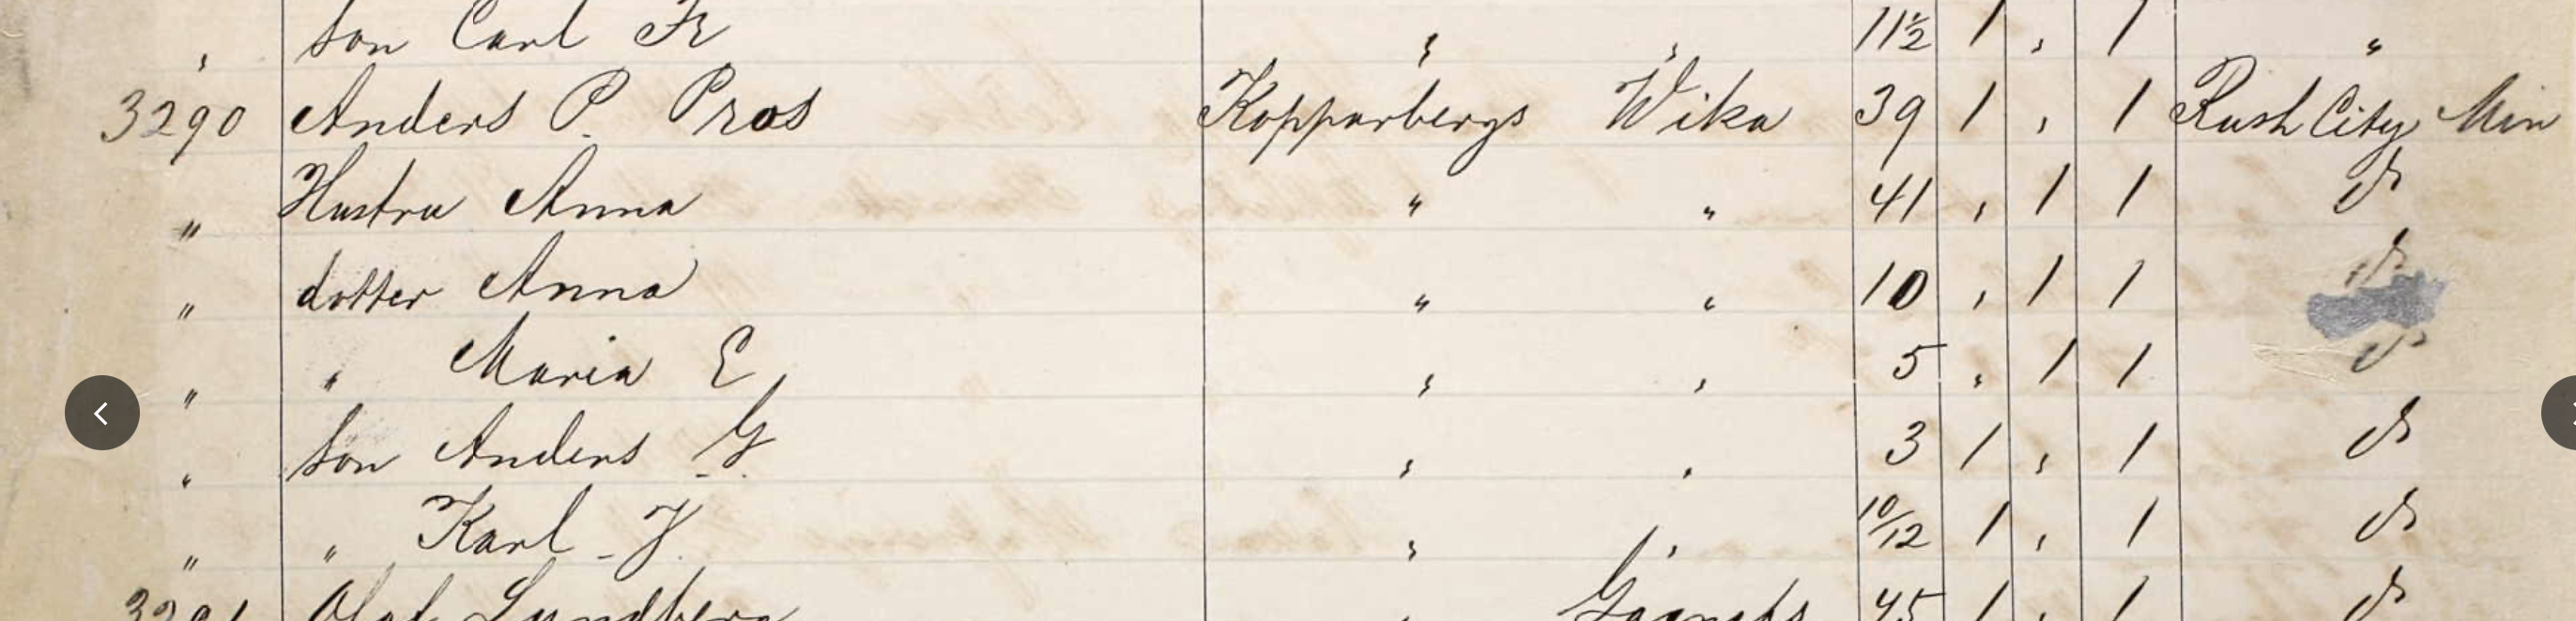 " son Carl Fr " " 11½ 1 , 1 "
3290 Anders P. Pros Kopparbergs Wika 39 1 , 1 Rush City Min
" Hustru Anna " " 41 , 1 1 do
" dotter Anna " " 10 , 1 1 do
" " Maria E " " 5 , 1 1 do
" son Anders G. " " 3 1 , 1 do
" " Karl J. " " 10/12 1 , 1 do
3291 Olof Lundberg " 45 1 , 1 do